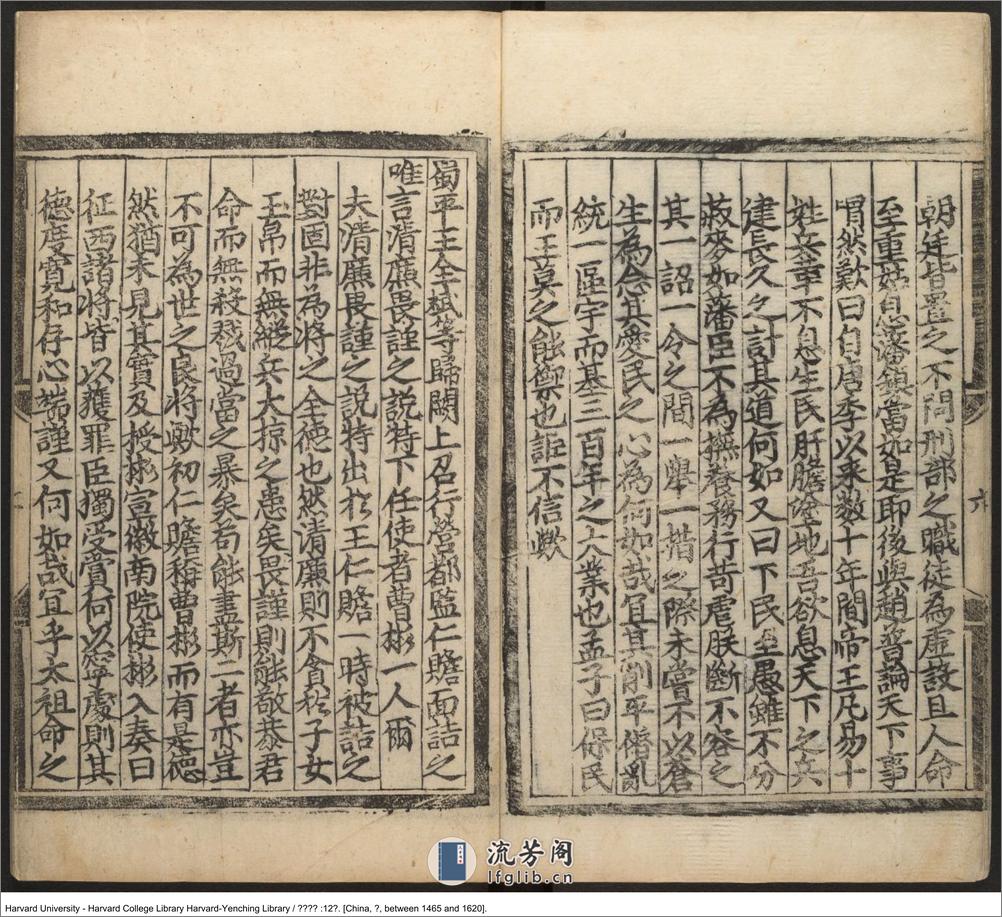 朝廷皆置之不問刑部之職徒為虛設且人命
至重姑息藩鎮當如是耶後與趙普論天下事
喟然歎曰自唐季以来数十年間帝王凡易十
姓兵革不息生民肝膽塗地吾欲息天下之兵
建長久之計其道何如又曰下民至愚雖不分
菽麥如藩臣不為撫養務行苛虐朕斷不容之
其一詔一令之間一舉一措之際未嘗不以蒼
生為念其愛民之心為何如哉冝其削平僭亂
統一區宇而基三百年之大業也孟子曰保民
而王莫之能禦也詎不信歟
蜀平王全斌等歸闕上召行營都監仁贍面詰之
唯言清廉畏謹之説特下任使者曹彬一人爾
夫清廉畏謹之説特出扵王仁贍一時被詰之
對固非為將之全德也然清廉則不貪扵子女
玉帛而無縱兵大掠之患矣畏謹則能敬恭君
命而無殺戮過當之暴矣苟能盡斯二者亦豈
不可為世之良将歟初仁贍稱曹彬而有是德
然猶未見其實及授彬宣徽南院使彬入奏曰
征西諸將皆以獲罪臣獨受賞何以寧處則其
德度寛和存心端謹又何如哉冝乎太祖命之
流芳阁
lfglib.cn
Harvard University - Harvard College Library Harvard-Yenching Library / ???? :12?. [China, ?, between 1465 and 1620].